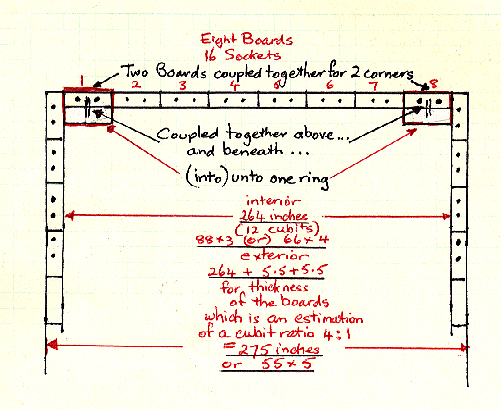 Eight Boards
16 Sockets
Two Boards coupled together for 2 corners
1 2 3 4 5 6 7 8
Coupled together above...
and beneath ...
(into) unto one ring
interior
264 inches
(12 cubits)
88x3 (or) 66x4
exterior
264 + 5.5+5.5
for thickness
of the boards
which is an estimation
of a cubit ratio 4:1
= 275 inches
or 55x5